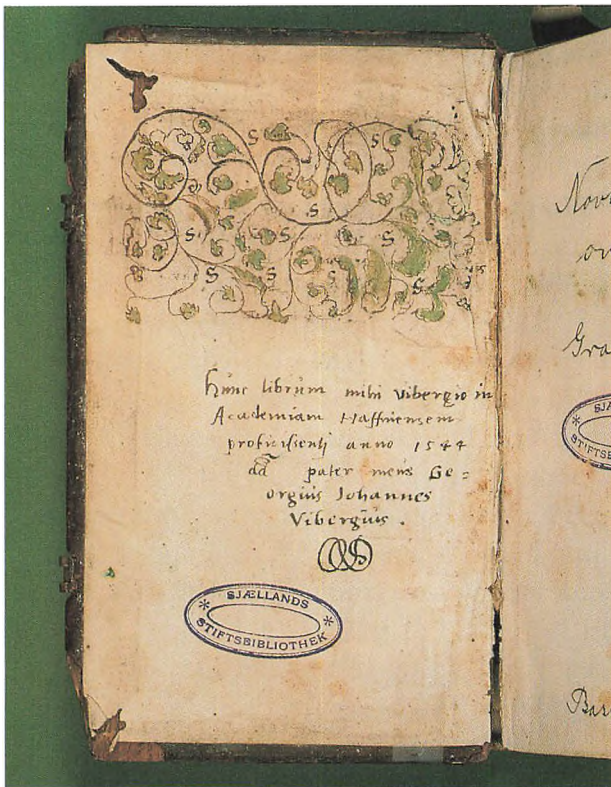 S S
S
S S
S S S
Hunc librum mihi Vibergio in
Academiam Haffniensem
proficiscenti anno 1544
dd pater meus Ge=
orgius Johannes
Vibergius.
SJÆLLANDS
STIFTSBIBLIOTHEK
Nov
or
Gra
SJÆ
STIFTSB
Bar